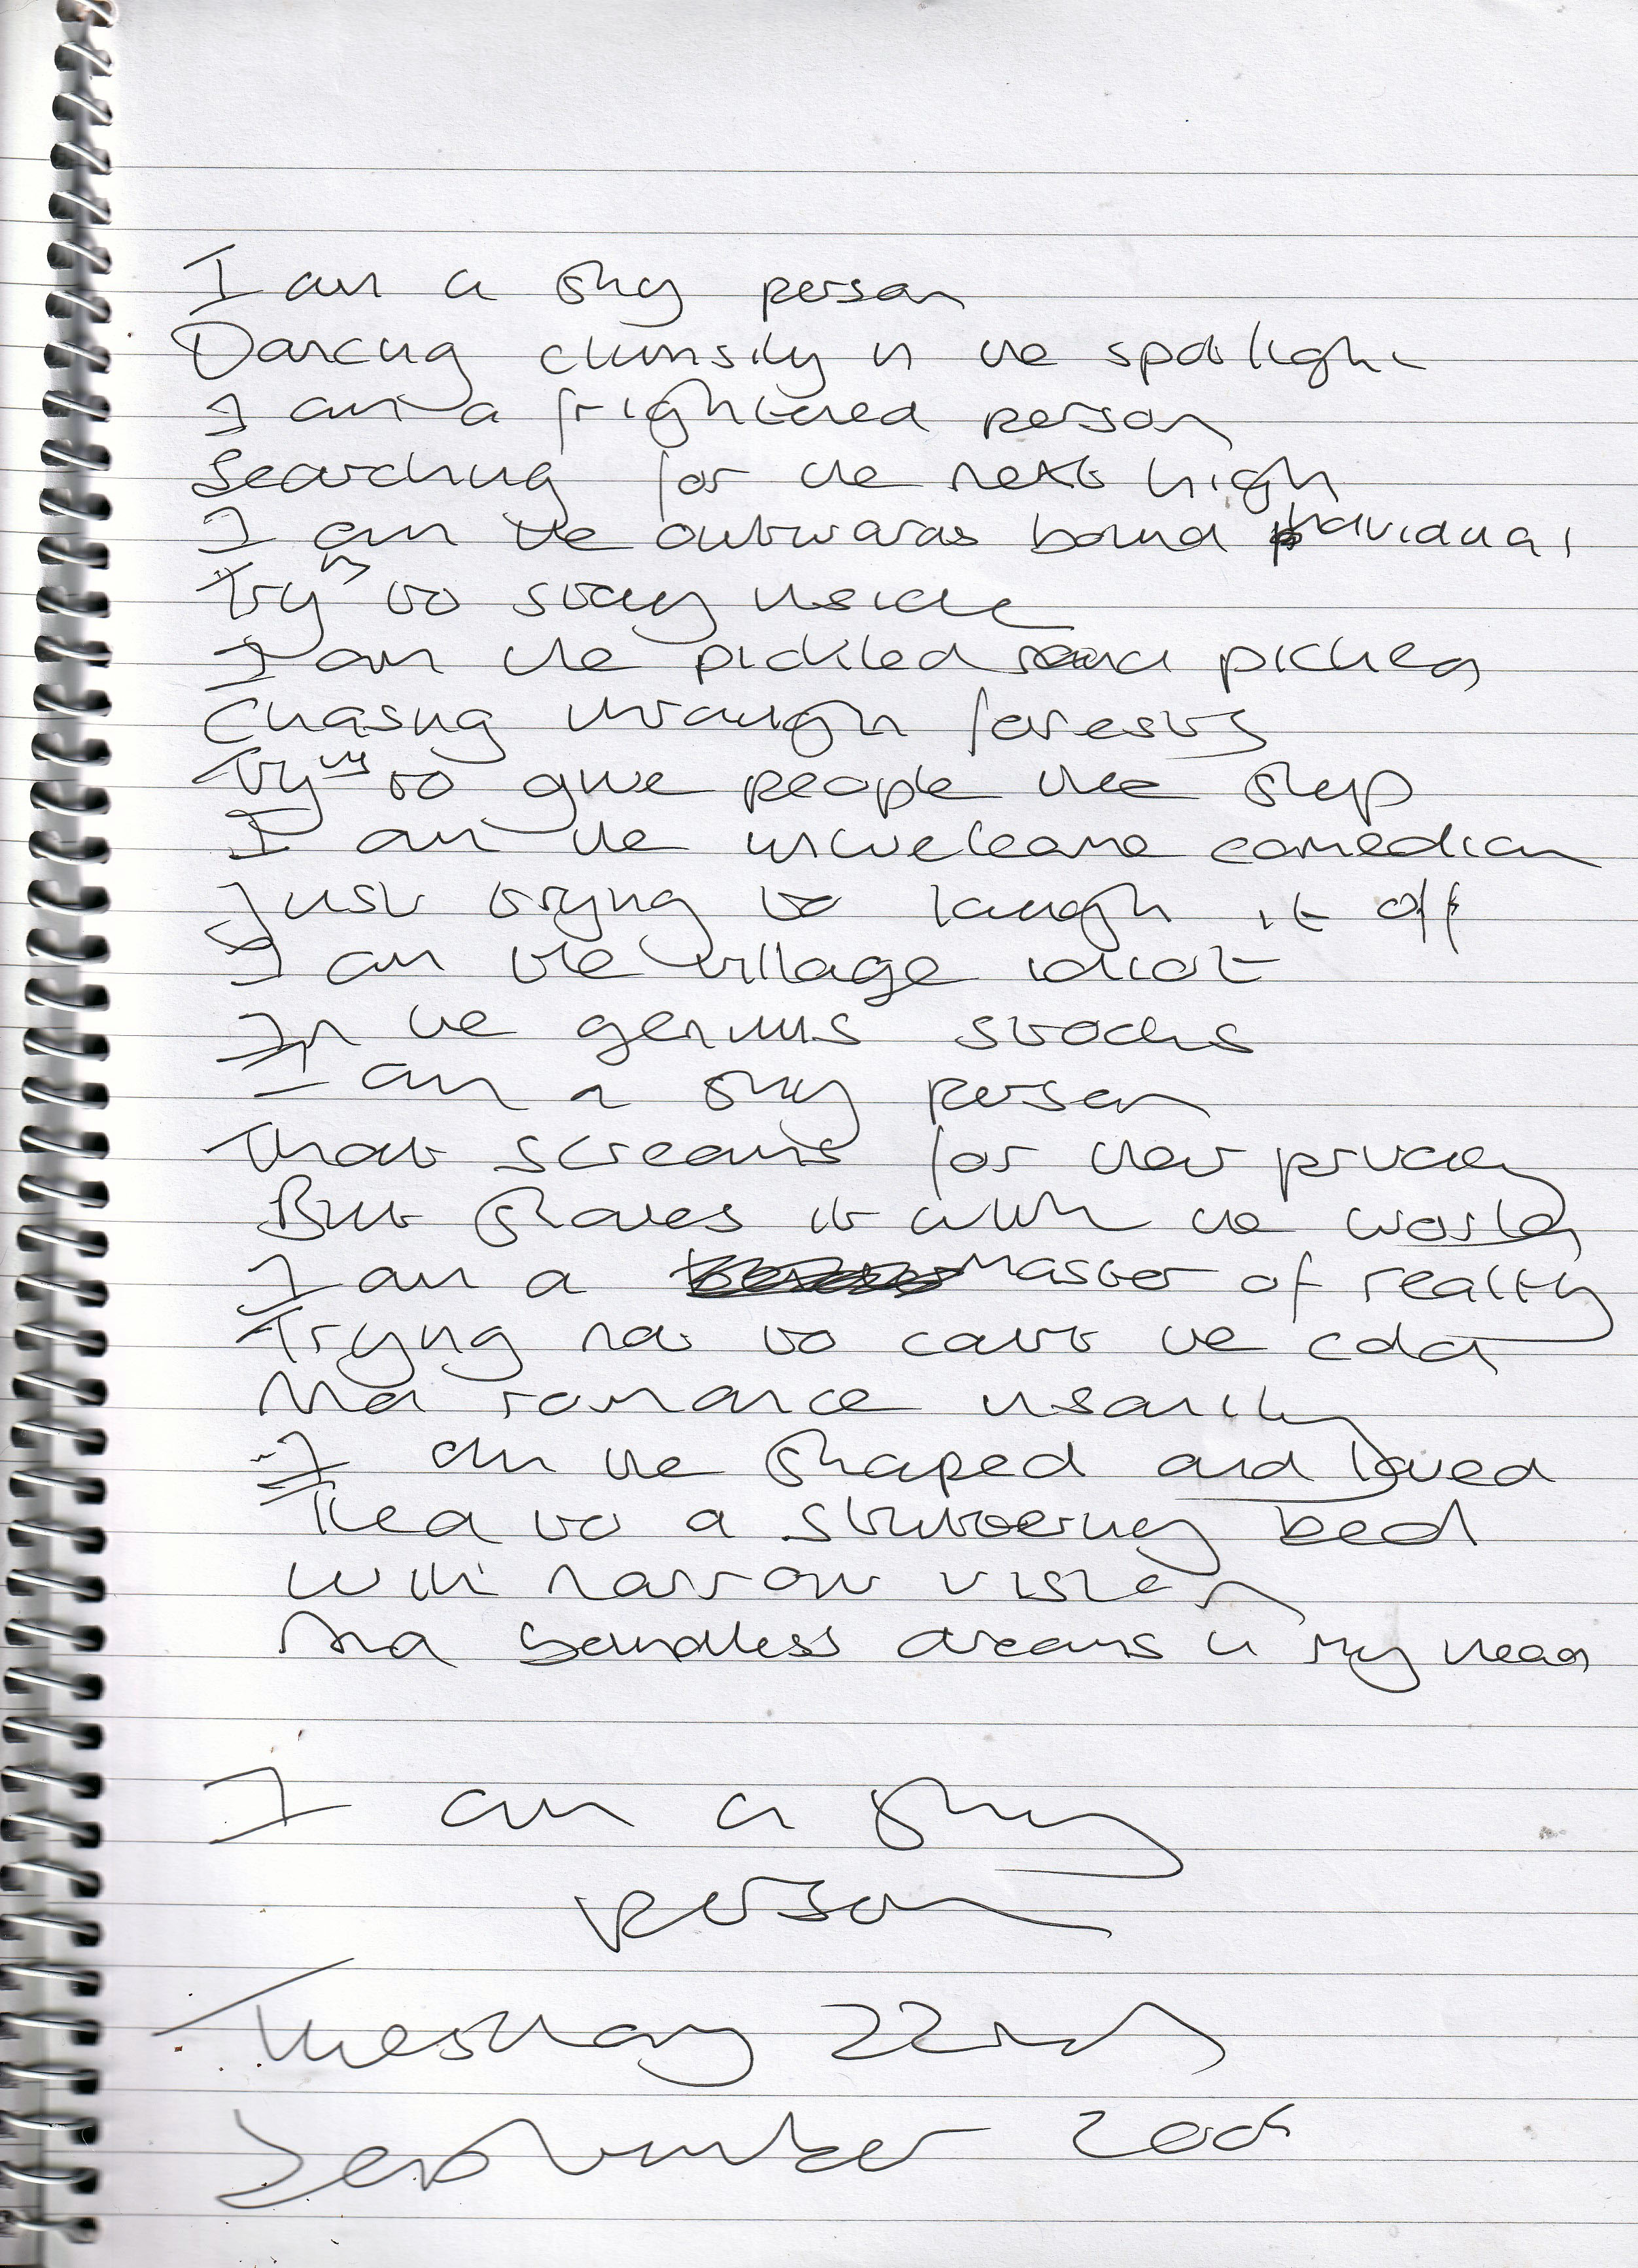 I am a shy person
Dancing clumsily in the spotlight
I am a frightened person
Searching for the next high
I am the outwards bound individual
Trying to stay inside
I am the pickled and picked
Chasing through forests
Trying to give people the slip
I am the unwelcome comedian
Just trying to laugh it off
I am the village idiot
In the genius stocks
I am a shy person
That screams for their privacy
But shares it with the world
I am a master of reality
Trying not to catch the cold
And romance insanity
I am the shaped and loved
Tied to a stuttering bed
With narrow vision
And boundless dreams in my head
I am a shy
person
Tuesday 22nd
September